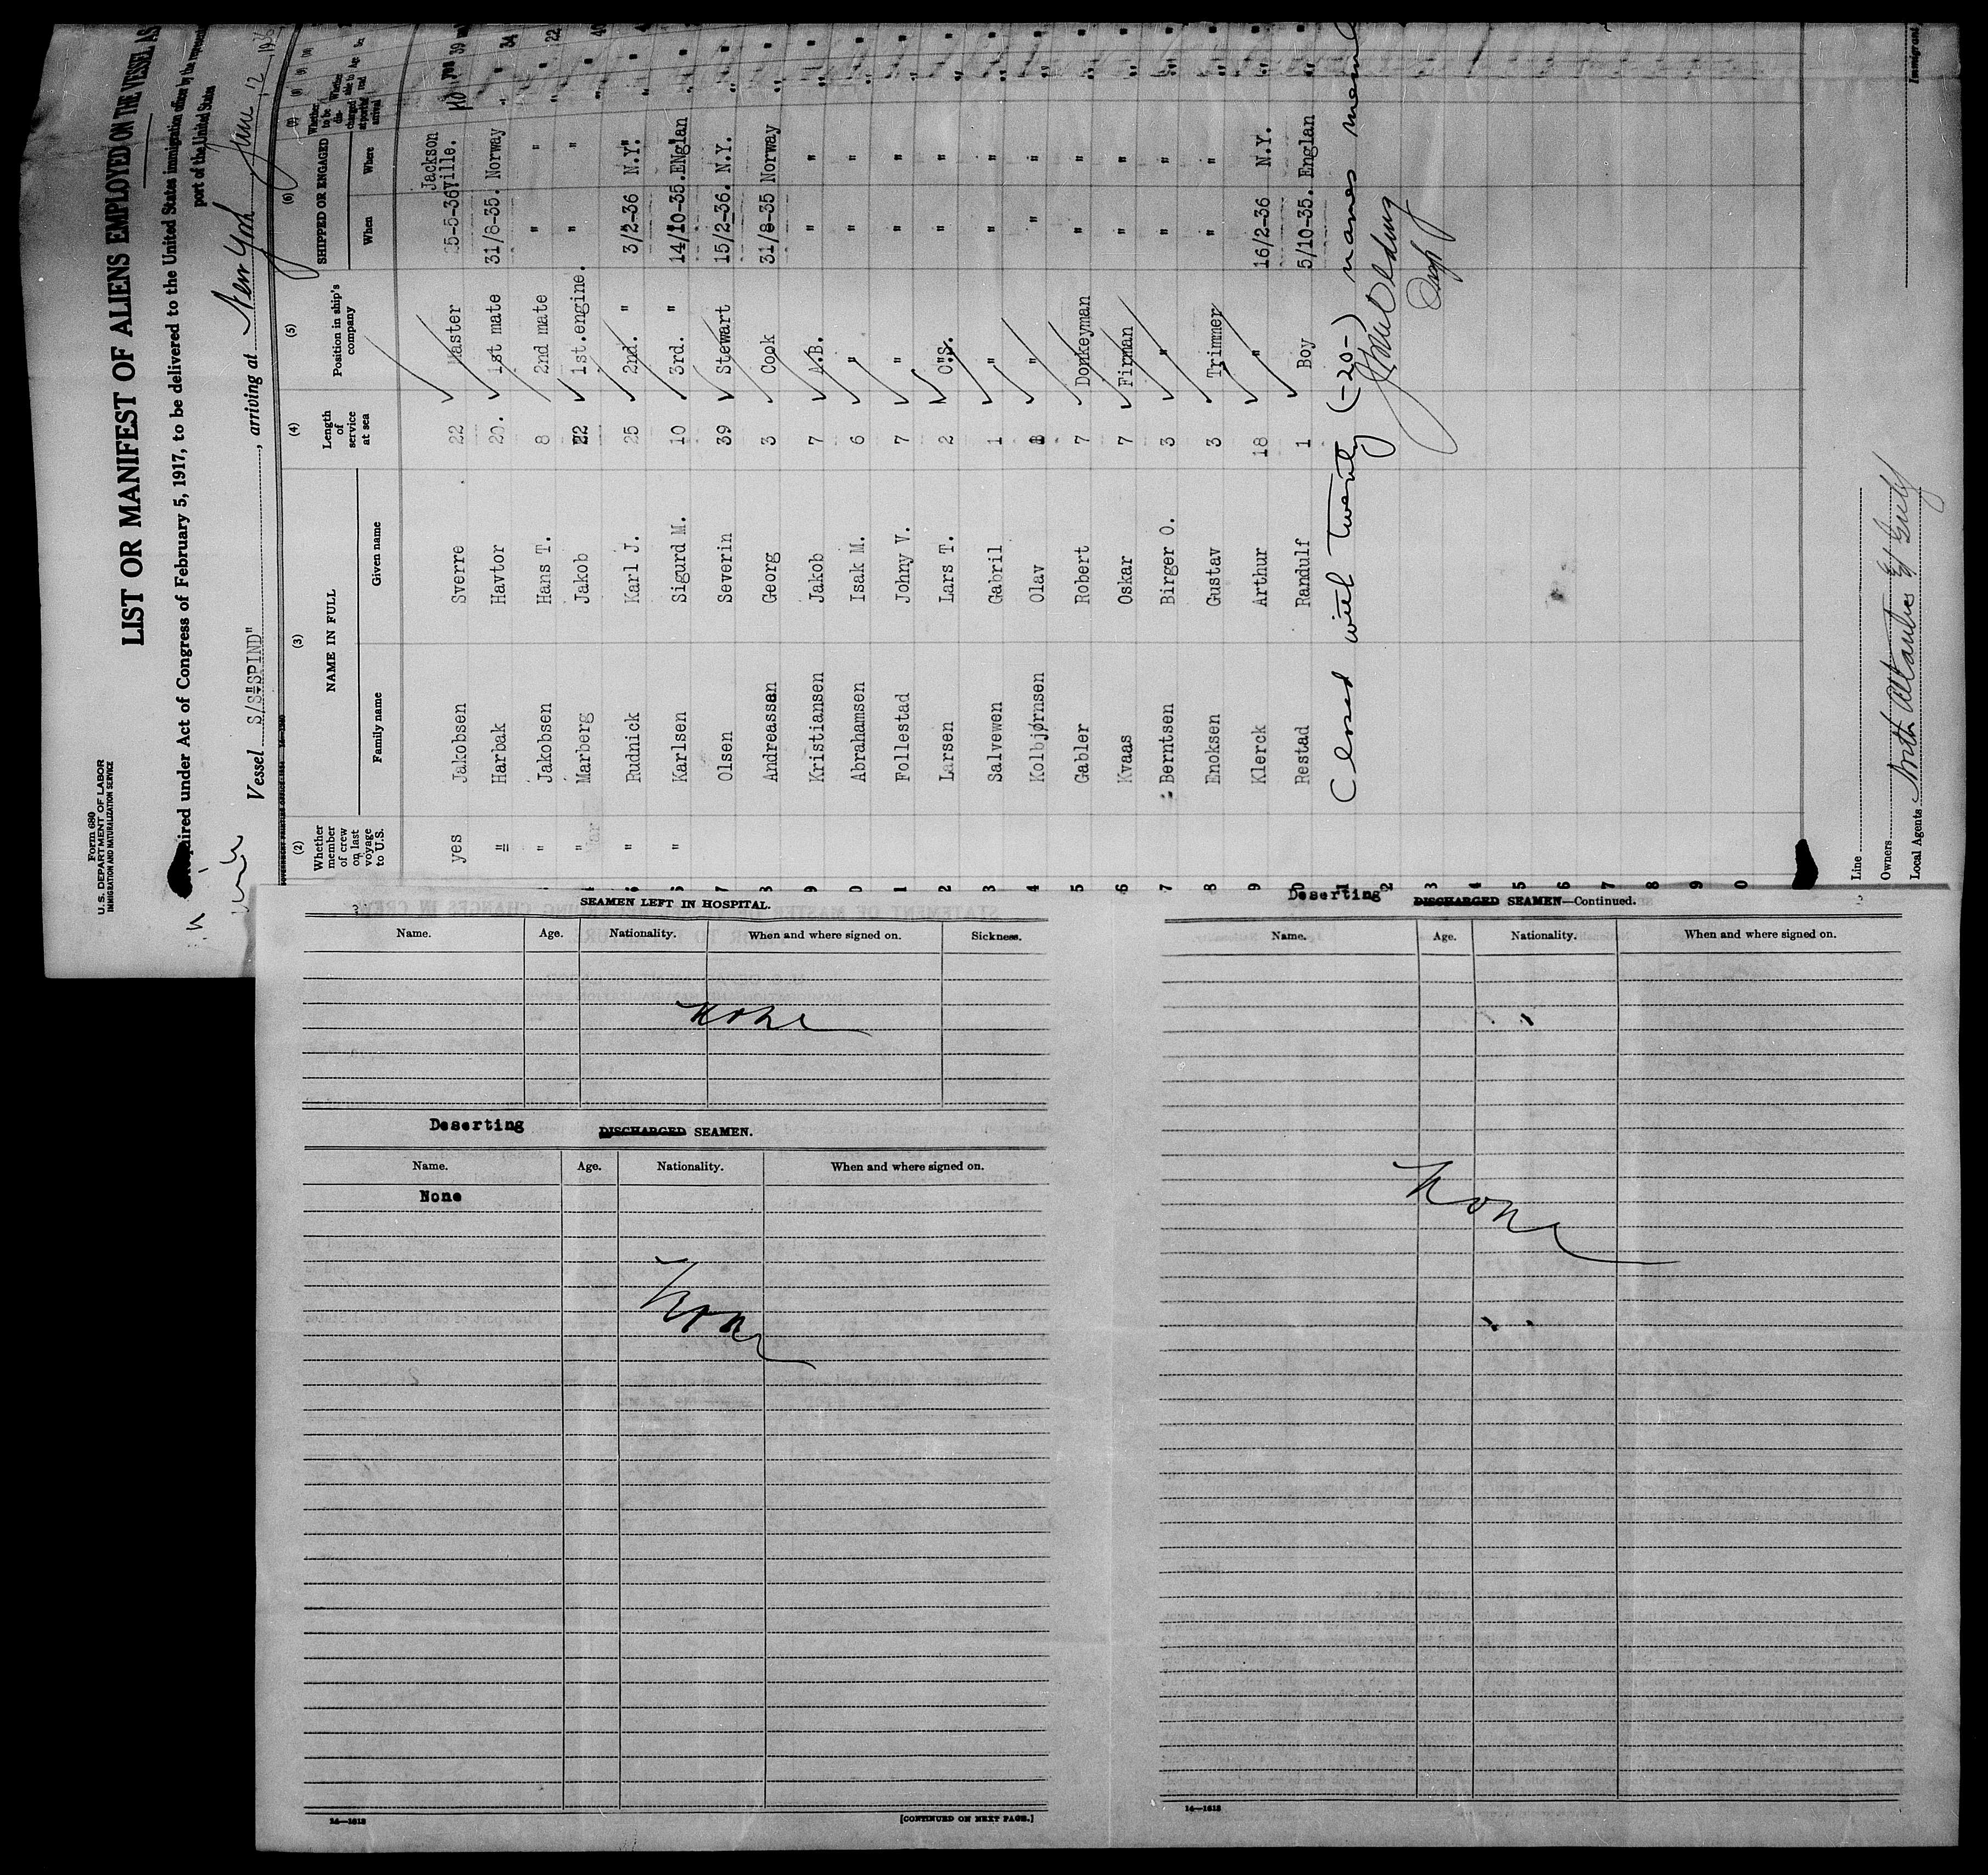 Form 680
U. S. DEPARTMENT OF LABOR
IMMIGRATION AND NATURALIZATION SERVICE
LIST OR MANIFEST OF ALIENS EMPLOYED ON THE VESSEL AS
Required under Act of Congress of February 5, 1917, to be delivered to the United States immigration officer by the represent
port of the United States
Vessel S/S"SPIND", arriving at New York June 12, 1936
(2) (3) (4) (5) (6) (7) (8) (9) (10)
Whether member of crew on last voyage to U.S. NAME IN FULL Length of service at sea Position in ship's company SHIPPED OR ENGAGED Whether to be discharged at port of arrival Whether able to read Age
Family name Given name When Where
yes Jakobsen Sverre 22 Master 25-5-36 Jacksonville. no yes 39
" Harbak Havtor 20. 1st mate 31/8-35. Norway " " 34
" Jakobsen Hans T. 8 2nd mate " " " " 22
" Marberg Jakob 22 1st.engine. " " " " 40
" Rudnick Karl J. 25 2nd. " 3/2-36 N.Y. " "
" Karlsen Sigurd M. 10 3rd. " 14/10-35. ENglan " "
7 Olsen Severin 39 Stewart 15/2-36. N.Y. " "
8 Andreassen Georg 3 Cook 31/8-35 Norway " "
9 Kristiansen Jakob 7 A.B. " " " "
0 Abrahamsen Isak M. 6 " " " " "
1 Follestad Johny V. 7 " " " " "
2 Larsen Lars T. 2 O.S. " " " "
3 Salvewen Gabril 1 " " " " "
4 Kolbjørnsen Olav " " " " "
5 Gabler Robert 7 Donkeyman " " " "
6 Kvaas Oskar 7 Firman " " " "
7 Berntsen Birger O. 3 " " " " "
8 Enoksen Gustav 3 Trimmer " " " "
9 Klerck Arthur 18 " 16/2-36 N.Y. " "
0 Restad Randulf 1 Boy 5/10-35. Englan " "
1 Closed with Twenty (-20-) names
2
3
4
5
6
7
8
9
0
Line
Owners
Local Agents North Atlantic & Gulf
Immigrant
SEAMEN LEFT IN HOSPITAL.
Name. Age. Nationality. When and where signed on. Sickness.
None
Deserting DISCHARGED SEAMEN.
Name. Age. Nationality. When and where signed on.
None
None
16—1618 [CONTINUED ON NEXT PAGE.]
Deserting DISCHARGED SEAMEN—Continued.
Name. Age. Nationality. When and where signed on.
None
14—1618